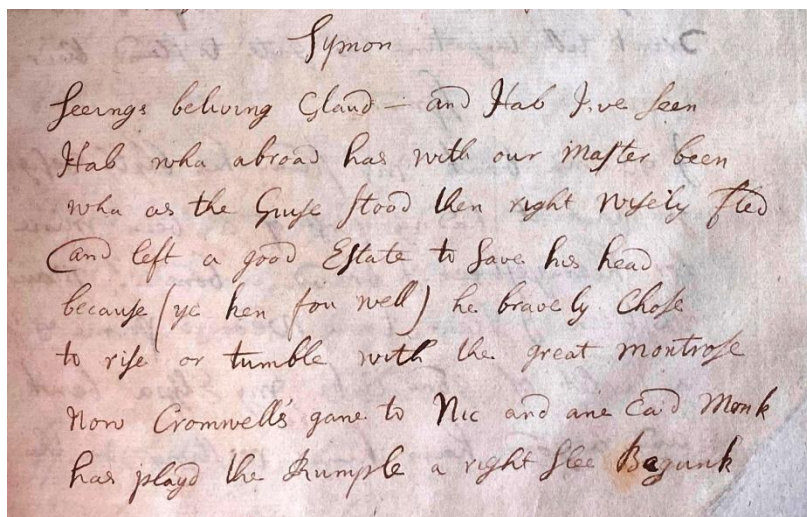 Symon
Seeings beliving Glaud — and Hab I,ve seen
Hab wha abroad has with our Master been
wha as the Guise stood then right wisely fled
and left a good Estate to save his head
because (ye ken fou well) he bravely Chose
to rise or tumble with the great montrose
Now Cromwell's gane to Nic and ane Ca'd Monk
has play'd the Rumple a right slee Begunk